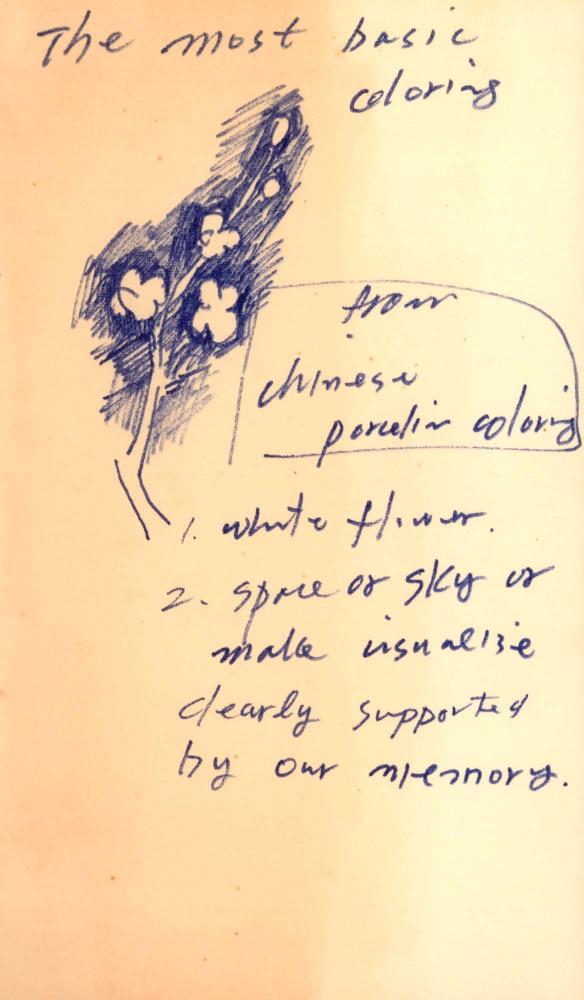 The most basic
coloring
from
chinese
porcelin coloring
1. white flower.
2. space or sky or
make visualise
clearly supported
by our memory.